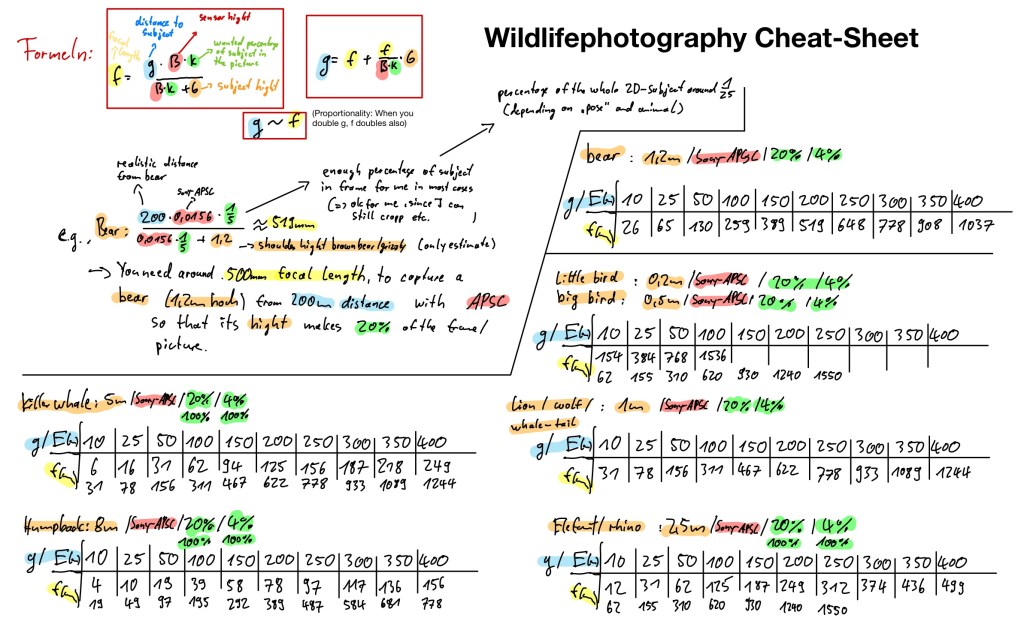 Wildlifephotography Cheat-Sheet
Formeln:
focal length
distance to subject
sensor hight
wanted percentage of subject in the picture
subject hight
f = g · B · k / B · k + G
g = f + f / B · k · G
g ~ f
(Proportionality: When you
double g, f doubles also)
percentage of the whole 2D-Subject around 1/25
(depending on „pose" and animal)
realistic distance
from bear
Sony APSC
enough percentage of subject
in frame for me in most cases
(=> ok for me, since I can
still cropp etc. )
e.g., Bear: 200 · 0,0156 · 1/5 / 0,0156 · 1/5 + 1,2 ≈ 519mm
→ shoulder hight brown bear/grizzly (only estimate)
→ You need around 500mm focal length, to capture a
bear (1,2m hoch) from 200m distance with APSC
so that its hight makes 20% of the frame/
picture.
bear : 1,2m / Sony APSC / 20% / 4%
g / E(m) 10 25 50 100 150 200 250 300 350 400
f(m) 26 65 130 259 389 519 648 778 908 1037
Little bird : 0,2m / Sony APSC / 20% / 4%
big bird : 0,5m / Sony APSC / 20% / 4%
g / E(m) 10 25 50 100 150 200 250 300 350 400
f(m) 154 384 768 1536
62 155 310 620 930 1240 1550
killer whale: 5m / Sony APSC / 20% / 4%
100% 100%
g / E(m) 10 25 50 100 150 200 250 300 350 400
f(m) 6 16 31 62 94 125 156 187 218 249
31 78 156 311 467 622 778 933 1089 1244
Lion / wolf / : 1m / Sony APSC / 20% / 4%
whale-tail
g / E(m) 10 25 50 100 150 200 250 300 350 400
f(m) 31 78 156 311 467 622 778 933 1089 1244
Humpback: 8m / Sony APSC / 20% / 4%
100% 100%
g / E(m) 10 25 50 100 150 200 250 300 350 400
f(m) 4 10 19 39 58 78 97 117 136 156
19 49 97 195 292 389 487 584 681 778
Elefant / rhino : 2,5m / Sony APSC / 20% / 4%
100% 100%
g / E(m) 10 25 50 100 150 200 250 300 350 400
f(m) 12 31 62 125 187 249 312 374 436 499
62 155 310 620 930 1240 1550